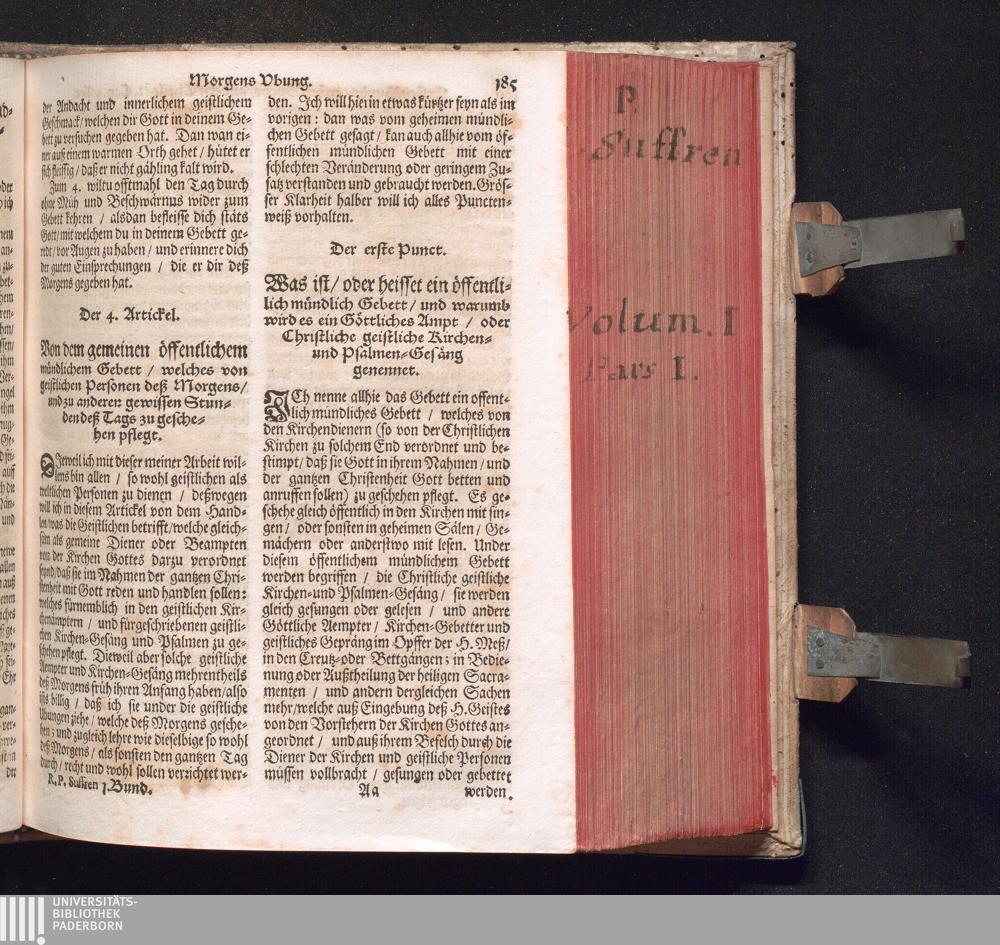 Morgens Vbung. 185
der Andacht und innerlichem geistlichem
Geschmack/welchen dir Gott in deinem Ge-
bett zu versuchen gegeben hat. Dan wan ei-
ner auß einem warmen Orth gehet/hütet er
sich fleissig/daß er nicht gähling kalt wird.
Zum 4. wiltu offtmahl den Tag durch
ohne Müh und Beschwärnus wider zum
Gebett kehren / alsdan befleisse dich stäts
Gott/mit welchem du in deinem Gebett ge-
redt/vor Augen zu haben/und erinnere dich
der guten Einsprechungen / die er dir deß
Morgens gegeben hat.
Der 4. Artickel.
Von dem gemeinen öffentlichem
mündlichem Gebett / welches von
geistlichen Personen deß Morgens/
und zu anderen gewissen Stun-
den deß Tags zu gesche-
hen pflegt.
DIeweil ich mit dieser meiner Arbeit wil-
lens bin allen / so wohl geistlichen als
weltlichen Personen zu dienen / deßwegen
will ich in diesem Artickel von dem Hand-
len/was die Geistlichen betrifft/welche gleich-
sam als gemeine Diener oder Beampten
von der Kirchen Gottes darzu verordnet
seynd/daß sie im Nahmen der gantzen Chri-
stenheit mit Gott reden und handlen sollen:
welches fürnemblich in den geistlichen Kir-
chenämptern / und fürgeschriebenen geistli-
chen Kirchen-Gesäng und Psalmen zu ge-
schehen pflegt. Dieweil aber solche geistliche
Aempter und Kirchen-Gesäng mehrentheils
deß Morgens früh ihren Anfang haben/also
ists billig / daß ich sie under die geistliche
Ubungen ziehe / welche deß Morgens gesche-
hen; und zugleich lehre wie dieselbige so wohl
deß Morgens / als sonsten den gantzen Tag
durch / recht und wohl sollen verrichtet wer-
R. P. Suffren 1. Bund.
den. Ich will hierin etwas kürtzer seyn als im
vorigen : dan was vom geheimen mündli-
chen Gebett gesagt / kan auch allhie vom öf-
fentlichen mündlichem Gebett mit einer
schlechten Veränderung oder geringem Zu-
satz verstanden und gebraucht werden. Grös-
ser Klarheit halber will ich alles Puncten-
weiß vorhalten.
Der erste Punct.
Was ist/ oder heisset ein öffentli-
lich mündlich Gebett/ und warumb
wird es ein Göttliches Ampt / oder
Christliche geistliche Kirchen-
und Psalmen-Gesäng
genennet.
ICh nenne allhie das Gebett ein offent-
lich mündliches Gebett / welches von
den Kirchendienern (so von der Christlichen
Kirchen zu solchem End verordnet und be-
stimpt/ daß sie Gott in ihrem Nahmen / und
der gantzen Christenheit Gott betten und
anruffen sollen) zu geschehen pflegt. Es ge-
schehe gleich öffentlich in den Kirchen mit sin-
gen / oder sonsten in geheimen Sälen / Ge-
mächern oder anderstwo mit lesen. Under
diesem öffentlichem mündlichem Gebett
werden begriffen / die Christliche geistliche
Kirchen-und Psalmen-Gesäng / sie werden
gleich gesungen oder gelesen / und andere
Göttliche Aempter / Kirchen-Gebetter und
geistliches Gepräng im Opffer der H. Meß/
in den Creutz-oder Bettgängen; in Bedie-
nung oder Außtheilung der heiligen Sacra-
menten / und andern dergleichen Sachen
mehr/welche auß Eingebung deß H. Geistes
von den Vorstehern der Kirchen Gottes an-
geordnet / und auß ihrem Befelch durch die
Diener der Kirchen und geistliche Personen
müssen vollbracht / gesungen oder gebettet
Aa werden.
P.
Suffren
Volum. I
Pars I.
UNIVERSITÄTS-
BIBLIOTHEK
PADERBORN